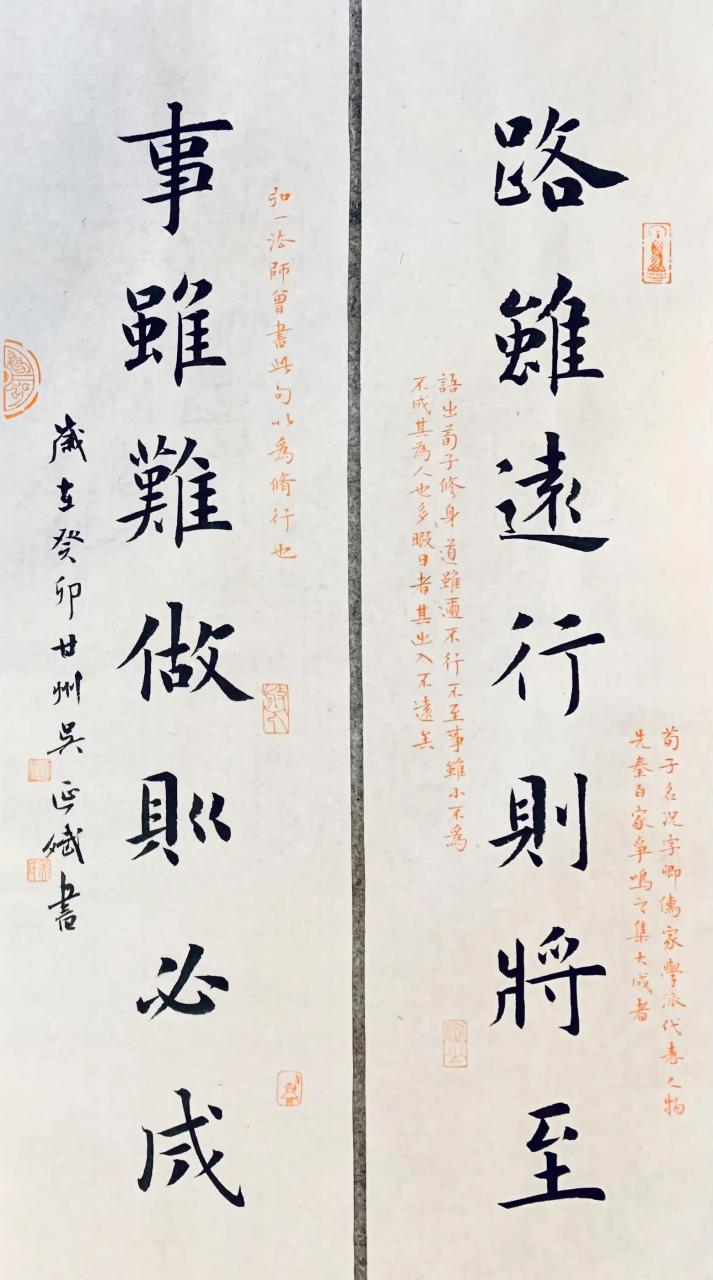 路雖遠行則將至
荀子名況字卿儒家學派代表人物
先秦百家爭鳴之集大成者
語出荀子修身道雖邇不行不至事雖小不為
不成其為人也多暇日者其出入不遠矣
事雖難做則必成
弘一法師曾書此句以為脩行也
歲在癸卯甘州吳正斌書